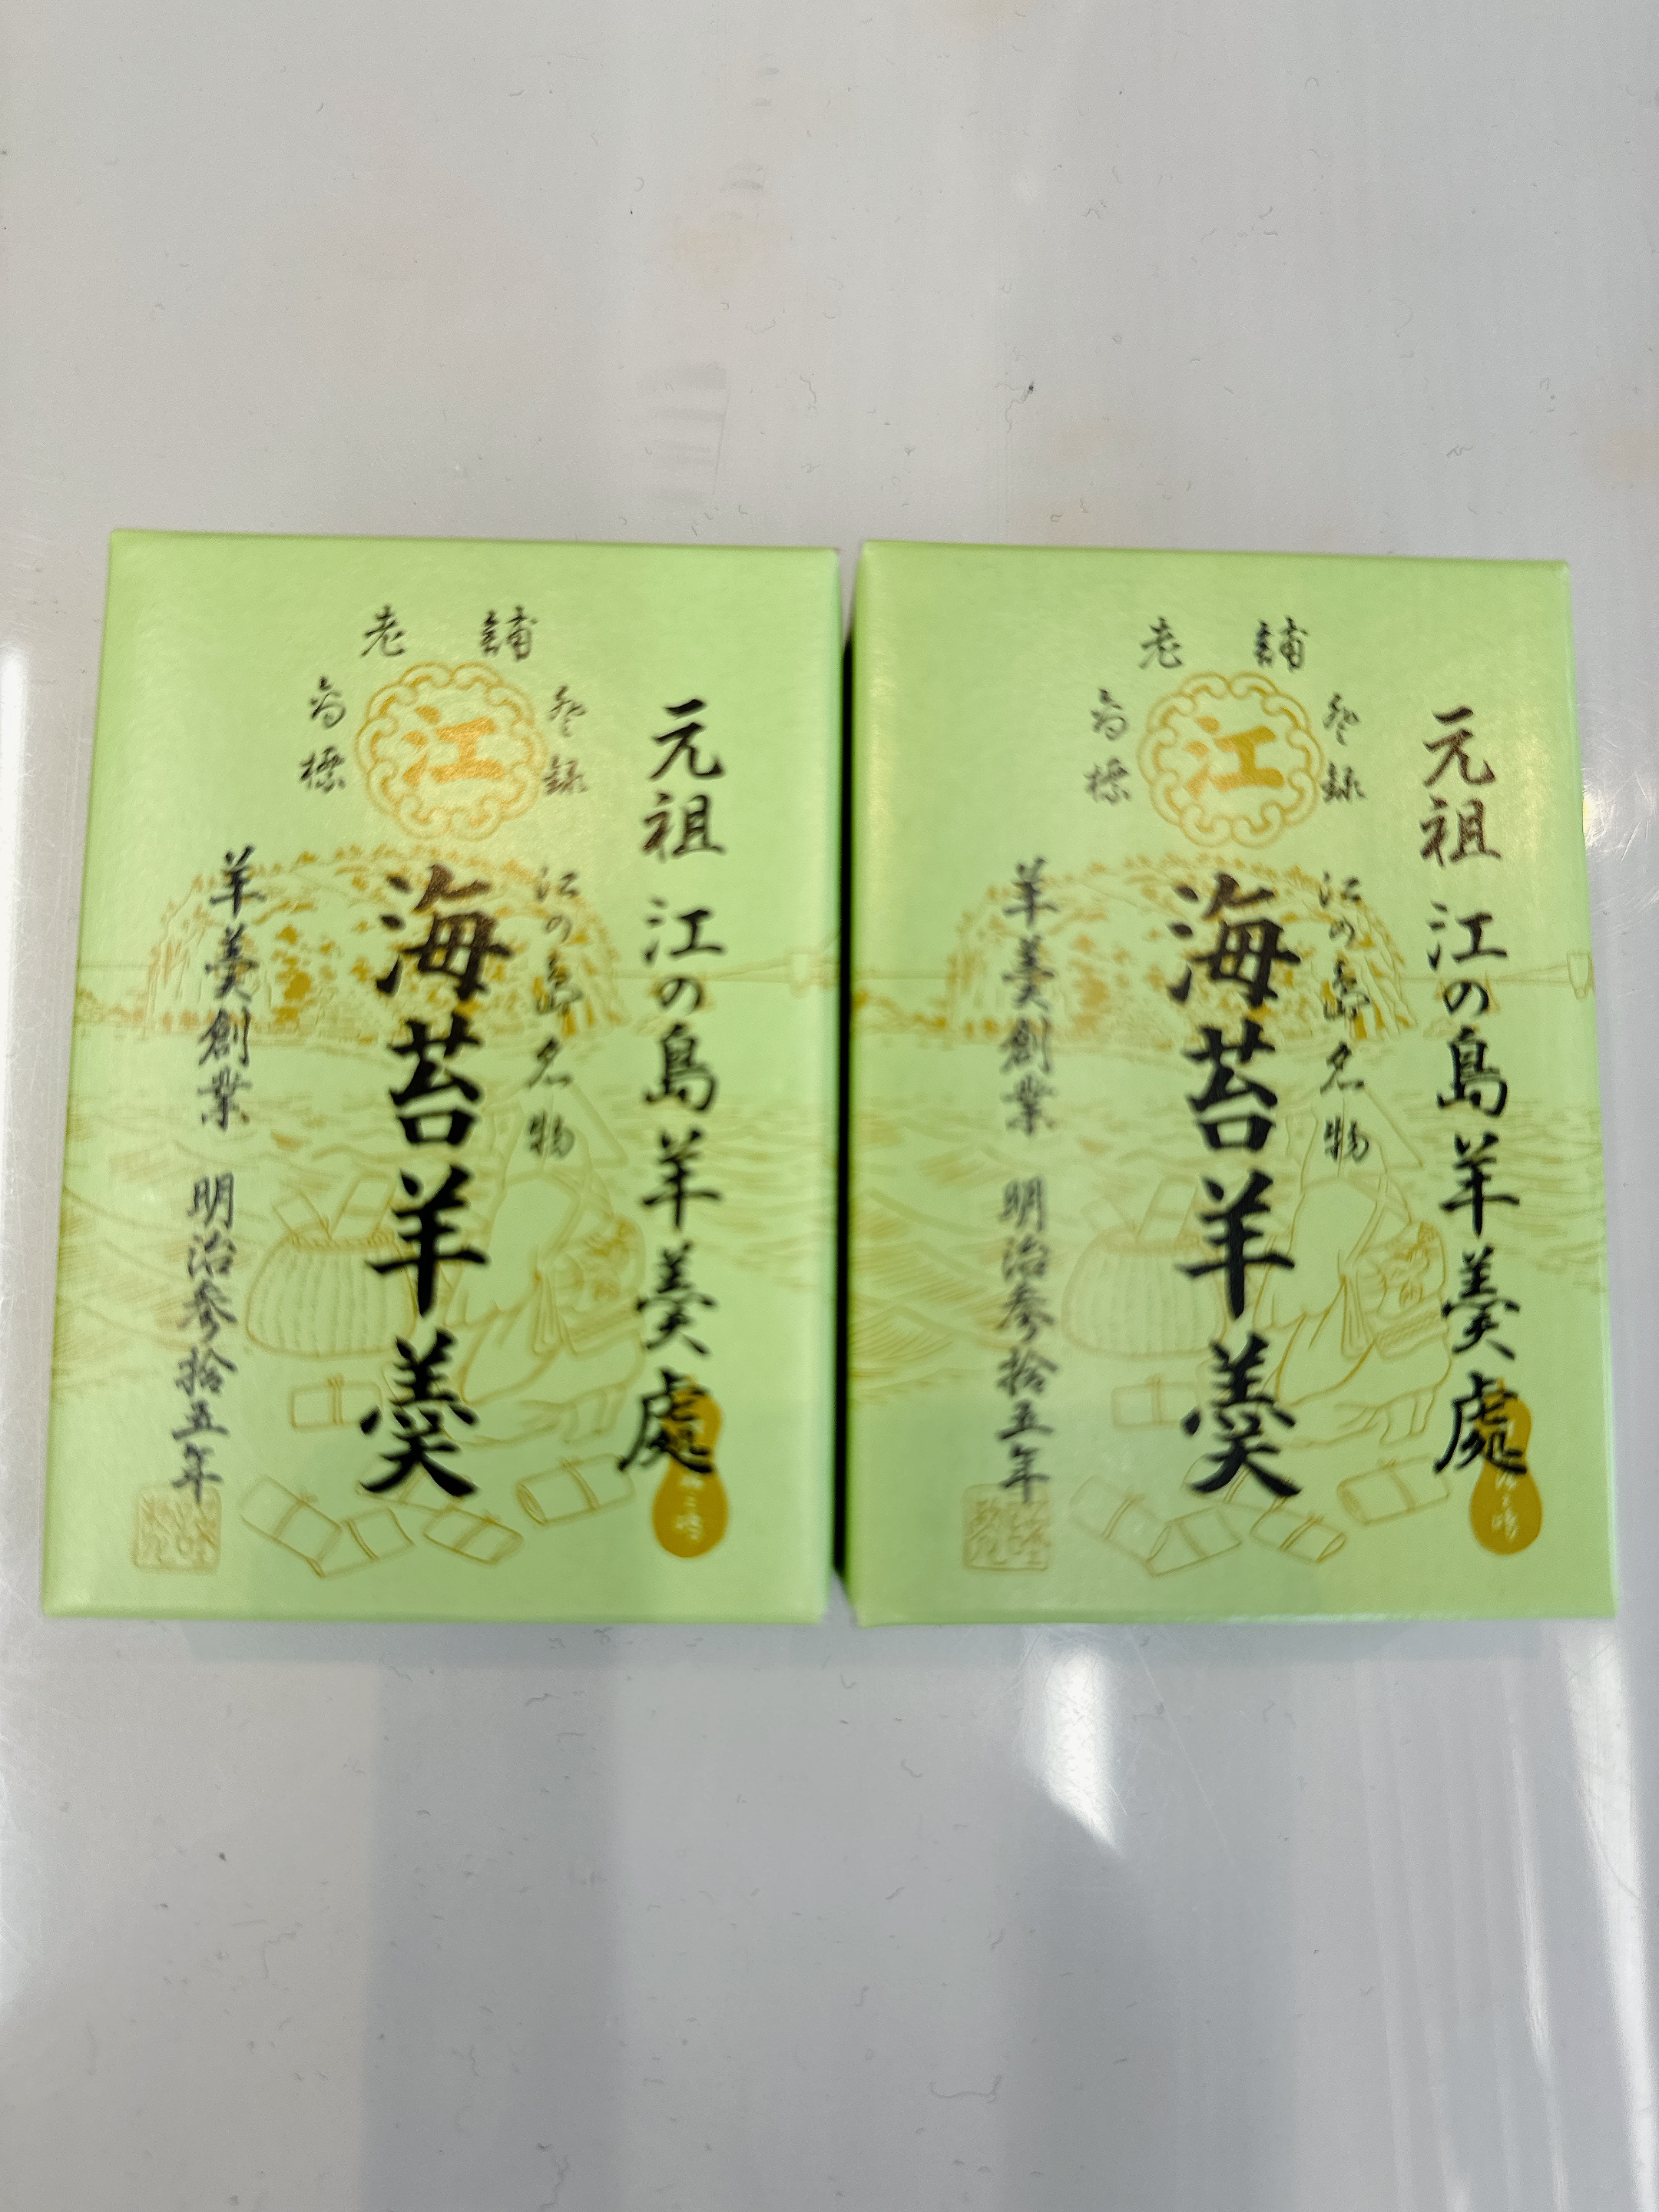 老舗
登録
商標
江
元祖 江の島羊羹處
江の島名物
海苔羊羹
羊羹創業 明治参拾五年
老舗
登録
商標
江
元祖 江の島羊羹處
江の島名物
海苔羊羹
羊羹創業 明治参拾五年